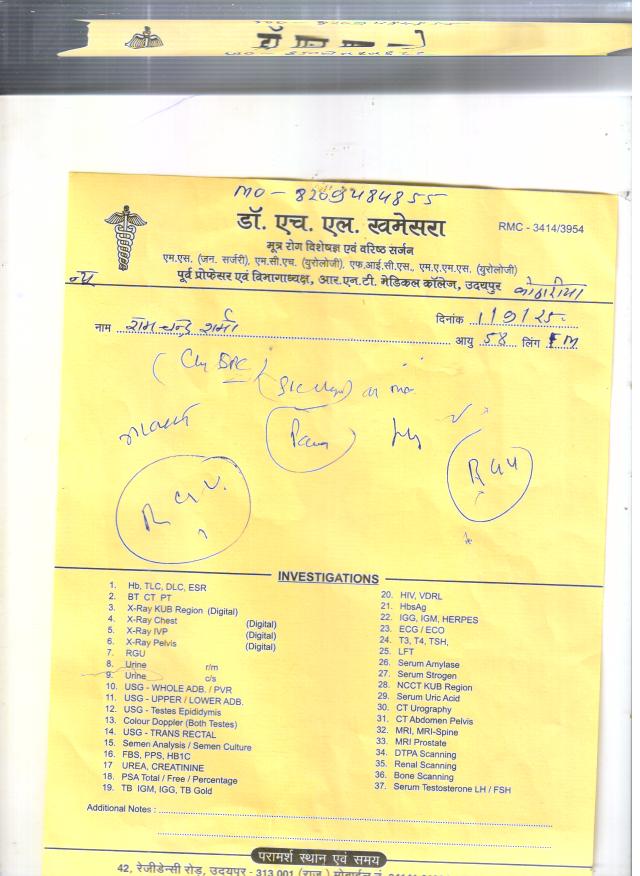 MO - 8209484855
डॉ. एच. एल. खमेसरा
RMC - 3414/3954
मूत्र रोग विशेषज्ञ एवं वरिष्ठ सर्जन
एम.एस. (जन. सर्जरी), एम.सी.एच. (युरोलोजी), एफ.आई.सी.एस., एम.ए.एम.एस. (युरोलोजी)
पूर्व प्रोफेसर एवं विभागाध्यक्ष, आर.एन.टी. मेडिकल कॉलेज, उदयपुर
दिनांक 1/9/25
नाम रामचन्द्र शर्मा आयु 58 लिंग M
INVESTIGATIONS
1. Hb, TLC, DLC, ESR
2. BT CT PT
3. X-Ray KUB Region (Digital)
4. X-Ray Chest (Digital)
5. X-Ray IVP (Digital)
6. X-Ray Pelvis (Digital)
7. RGU
8. Urine r/m
9. Urine c/s
10. USG - WHOLE ADB. / PVR
11. USG - UPPER / LOWER ADB.
12. USG - Testes Epididymis
13. Colour Doppler (Both Testes)
14. USG - TRANS RECTAL
15. Semen Analysis / Semen Culture
16. FBS, PPS, HB1C
17 UREA, CREATININE
18. PSA Total / Free / Percentage
19. TB IGM, IGG, TB Gold
20. HIV, VDRL
21. HbsAg
22. IGG, IGM, HERPES
23. ECG / ECO
24. T3, T4, TSH,
25. LFT
26. Serum Amylase
27. Serum Strogen
28. NCCT KUB Region
29. Serum Uric Acid
30. CT Urography
31. CT Abdomen Pelvis
32. MRI, MRI-Spine
33. MRI Prostate
34. DTPA Scanning
35. Renal Scanning
36. Bone Scanning
37. Serum Testosterone LH / FSH
Additional Notes :
परामर्श स्थान एवं समय
42, रेजीडेन्सी रोड़, उदयपुर - 313 001 (राज.)